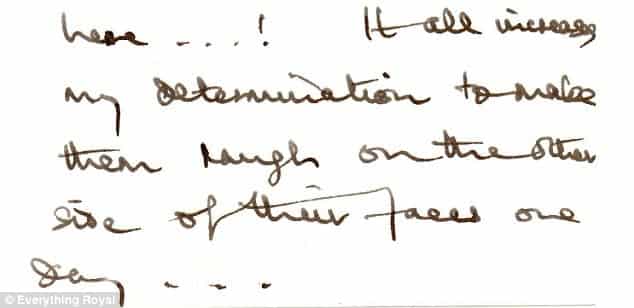 here . . . . ! It all increases
my determination to make
them laugh on the other
side of their faces one
day . . . .
© Everything Royal